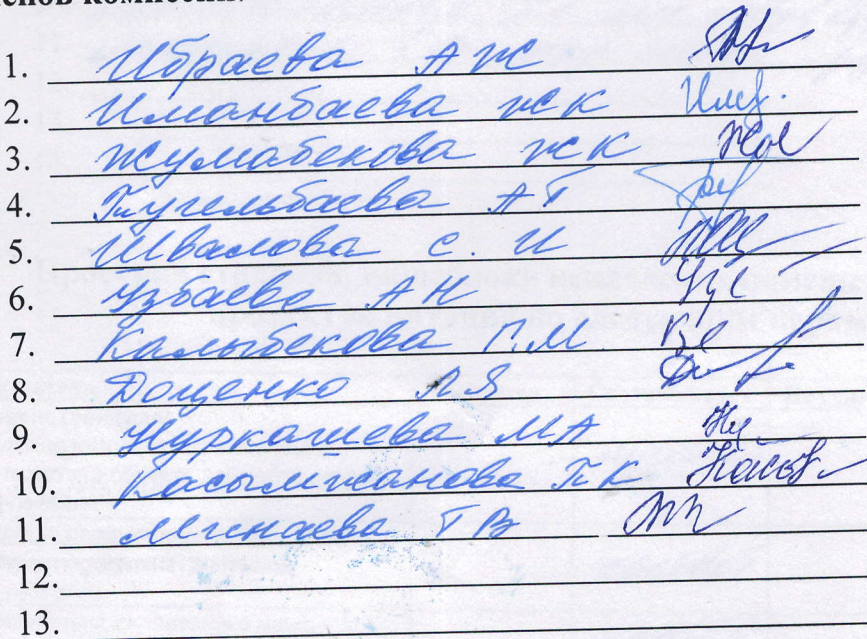 членов комиссии:
1. Ибраева А Ж
2. Иманбаева Ж К
3. Жумабекова Ж К
4. Тугельбаева А Т
5. Швалова С. И
6. Узбаева А Н
7. Калыбекова Г. М
8. Доценко Л Я
9. Нуркашева М А
10. Касымжанова Г К Касы
11. Минаева Т В
12.
13.